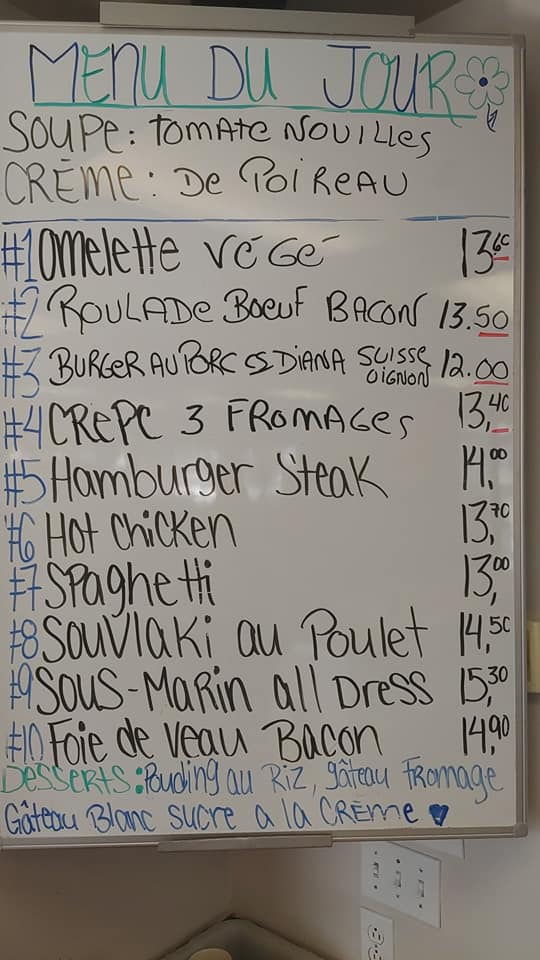 MENU DU JOUR
SOUPE: TOMATE NOUILLES
CRÈME: DE POIREAU
#1 Omelette VÉGÉ 13,60
#2 ROULADE BOEUF BACON 13.50
#3 BURGER AU PORC DIANA SUISSE OIGNON 12.00
#4 CREPE 3 FROMAGES 13,40
#5 Hamburger Steak 14,00
#6 Hot Chicken 13,70
#7 Spaghetti 13,00
#8 Souvlaki au Poulet 14,50
#9 SOUS-MARIN all DRESS 15,30
#10 Foie de Veau Bacon 14,90
DESSERTS: Pouding au Riz, gâteau Fromage
Gâteau Blanc sucre a la CRÈME